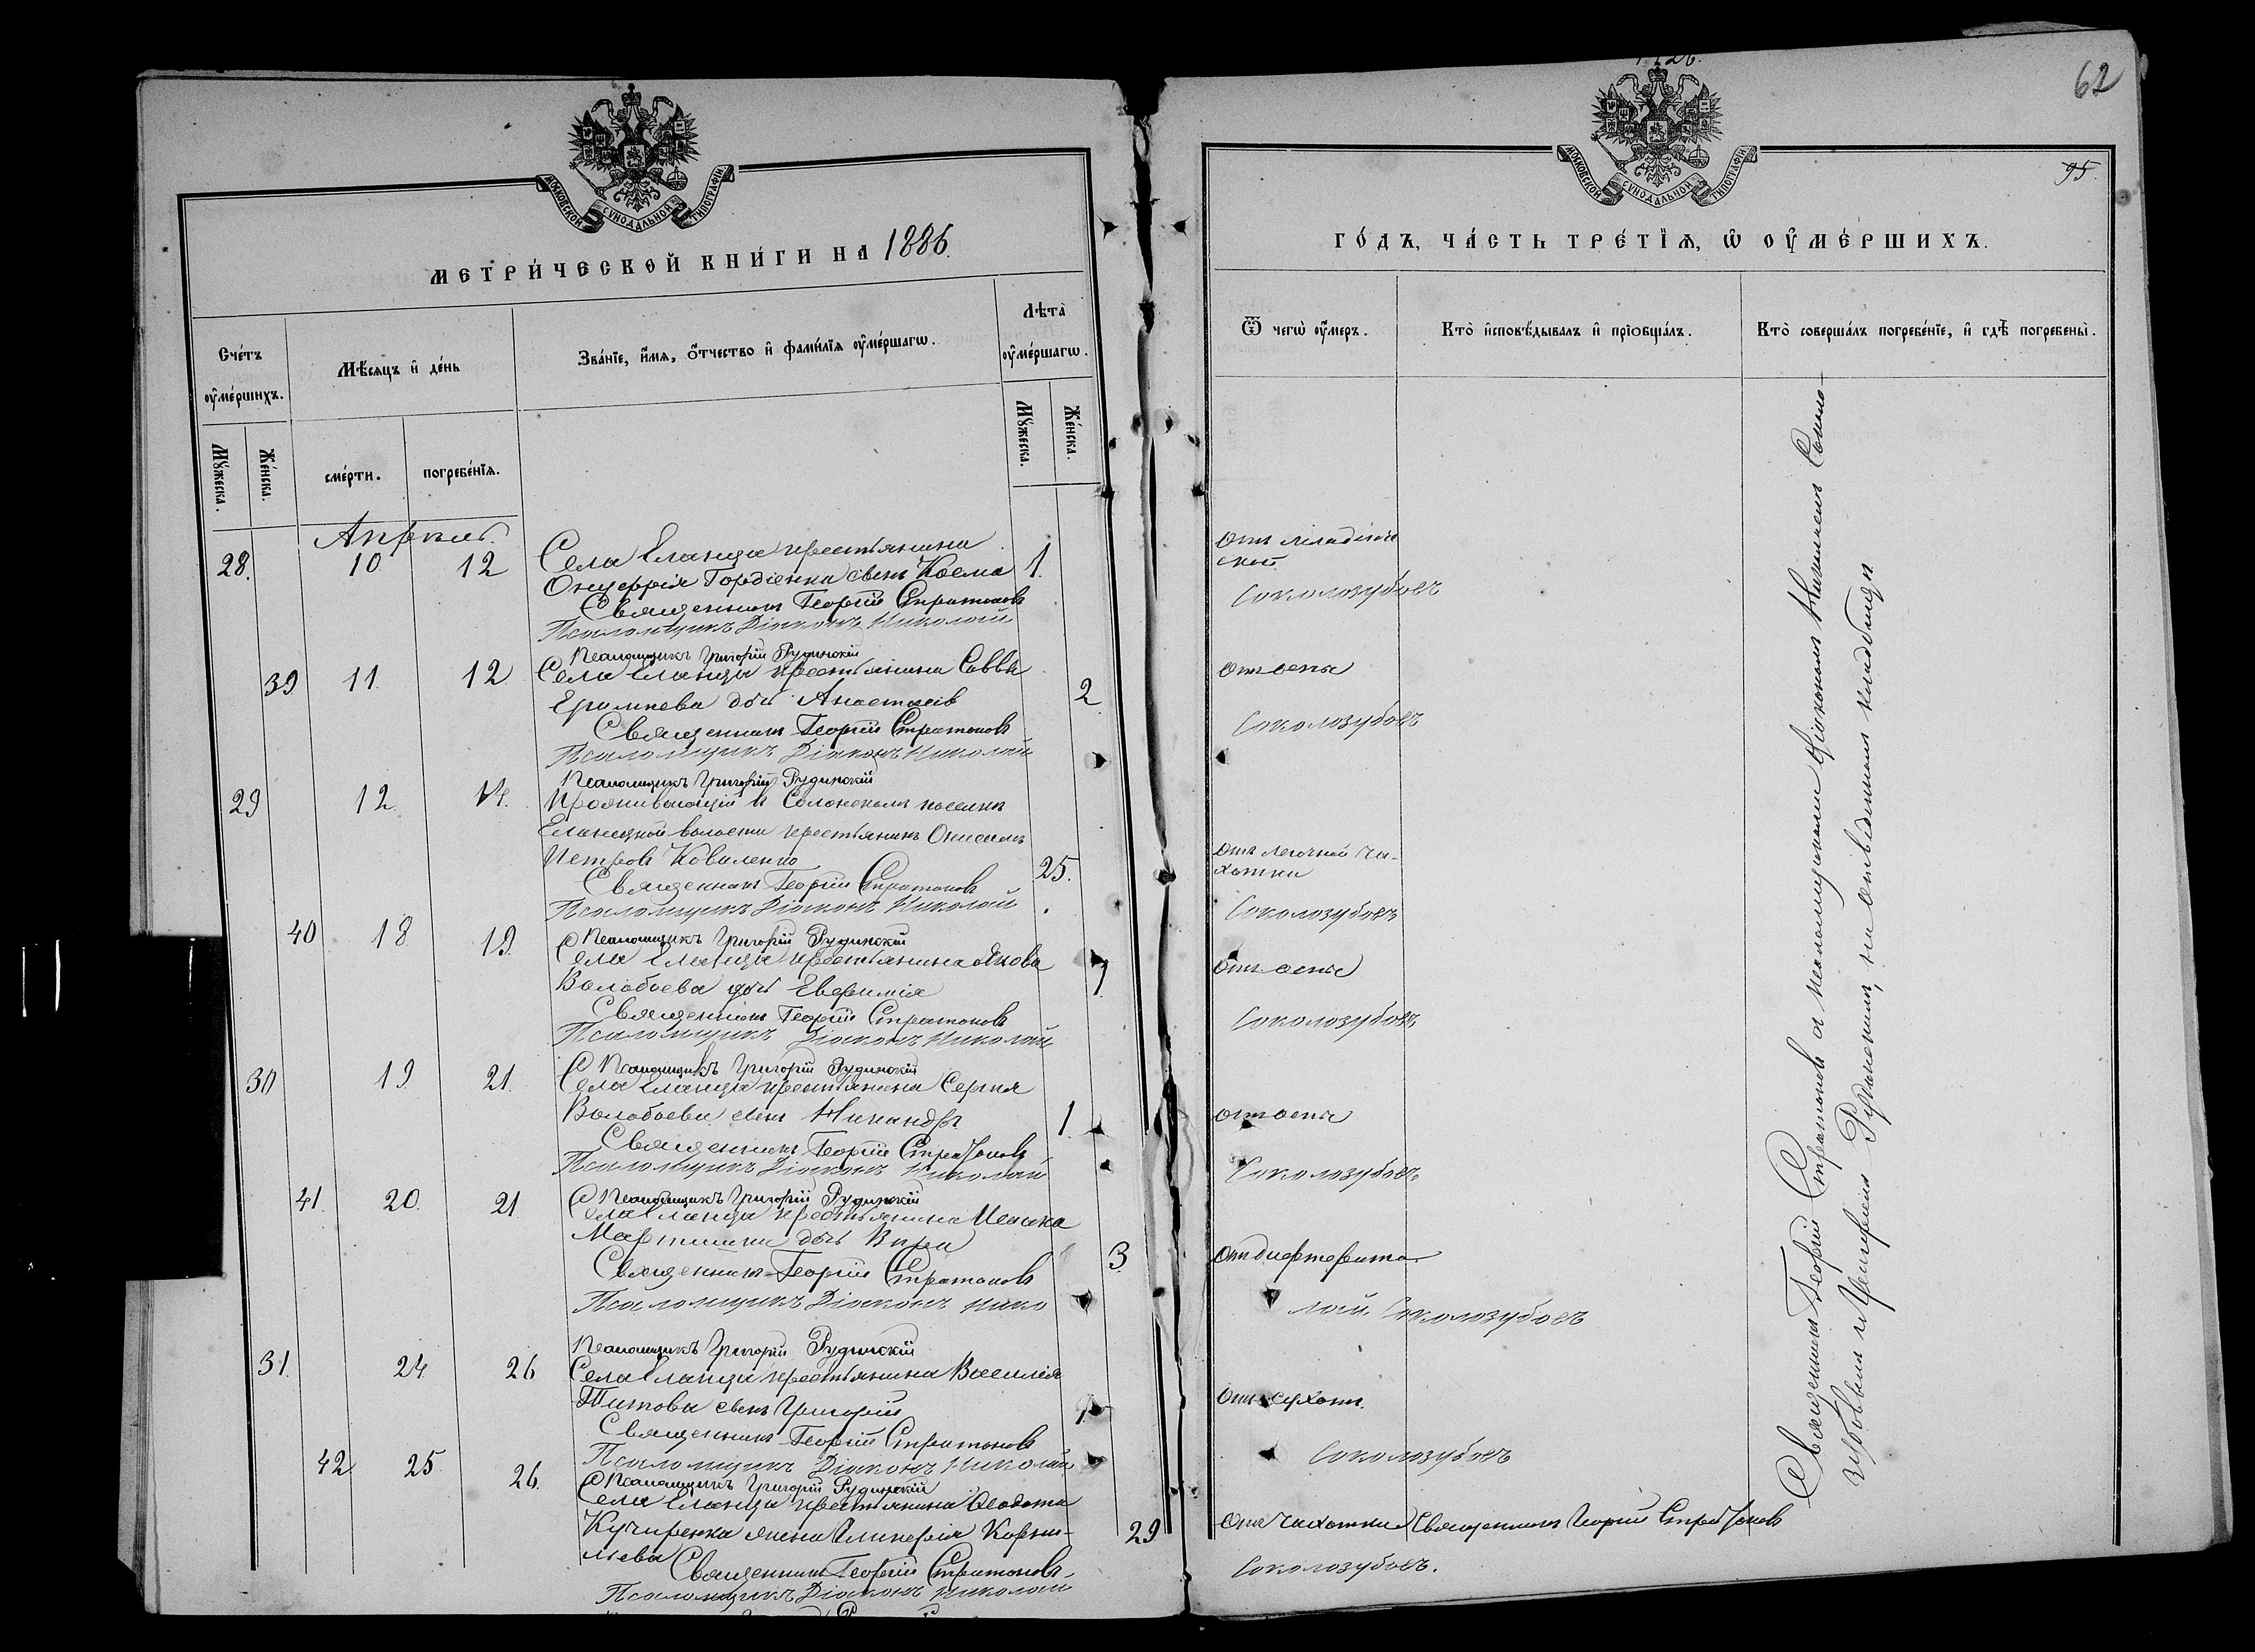 МОСКОВСКОЙ СѴНОДАЛЬНОЙ ТИПОГРАФІИ
МЕТРИ́ЧЕСКОЙ КНИ́ГИ НА 1886.
Сче́тъ оу҆ме́ршихъ.
Мѣ́сяцъ и҆ де́нь
Зва́нїе, и҆́мѧ, ѻ҆́тчество и҆ фами́лїѧ оу҆ме́ршагѡ.
Лѣта̀ оу҆ме́ршагѡ.
Му́жеска.
Же́нска.
сме́рти.
погребе́нїѧ.
Му́жеска.
Же́нска.
Апрѣль.
28. 10 12 Села Еланца крестьянина 1.
Онуфрія Гордіенка сынъ Косма
Священникъ Георгій Стратоновъ
Псаломщикъ Діаконъ Николай
Псаломщикъ Григорій Рудинскій
39 11 12 Села Еланца крестьянина Саввы 2
дочь Анастасія
Священникъ Георгій Стратоновъ
Псаломщикъ Діаконъ Николай
Псаломщикъ Григорій Рудинскій
29 12 14. Проживающій въ поселкѣ
Еланецкой волости крестьянинъ Онисимъ
Петровъ Коваленко 25.
Священникъ Георгій Стратоновъ
Псаломщикъ Діаконъ Николай
Псаломщикъ Григорій Рудинскій
40 18 19. Села Еланца крестьянина Якова 1
Волобоева дочь Евфимія
Священникъ Георгій Стратоновъ
Псаломщикъ Діаконъ Николай
Псаломщикъ Григорій Рудинскій
30 19 21. Села Еланца крестьянина Сергія
Волобоева сынъ Никандръ 1.
Священникъ Георгій Стратоновъ
Псаломщикъ Діаконъ Николай
Псаломщикъ Григорій Рудинскій
41. 20. 21 Села Еланца крестьянина
дочь Вѣра 3
Священникъ Георгій Стратоновъ
Псаломщикъ Діаконъ Нико
Псаломщикъ Григорій Рудинскій
31. 24 26 Села Еланца крестьянина Василія
Титова сынъ Григорій
Священникъ Георгій Стратоновъ
Псаломщикъ Діаконъ Николай
Псаломщикъ Григорій Рудинскій
42 25 26. Села Еланца крестьянина Ѳеодота
Кучеренка жена Гликерія Корни- 29
лиева Священникъ Георгій Стратоновъ
Псаломщикъ Діаконъ Николай
62
МОСКОВСКОЙ СѴНОДАЛЬНОЙ ТИПОГРАФІИ
95.
ГО́ДЪ, ЧА́СТЬ ТРЕ́ТЇѦ, Ѡ҆ ОУ҆МЕ́РШИХЪ.
Ѿ чегѡ̀ оу҆́меръ.
Кто̀ и҆сповѣ́дывалъ и҆ прїѡбща́лъ.
Кто̀ соверша́лъ погребе́нїе, и҆ гдѣ̀ погребены̀.
отъ младенче
ской
Соколозубовъ
отъ оспы
Соколозубовъ
отъ легочной ча-
хотки
Соколозубовъ
отъ оспы
Соколозубовъ
отъ оспы
Соколозубовъ
отъ дифтерита
лай Соколозубовъ
отъ сухотъ
Соколозубовъ
отъ чахотки Священникъ Георгій Стратоновъ
Соколозубовъ.
Священникъ Георгій Стратоновъ съ псаломщиками Діакономъ Николаемъ Соколо-
зубовымъ и Григоріемъ Рудинскимъ, на отведенномъ кладбищѣ